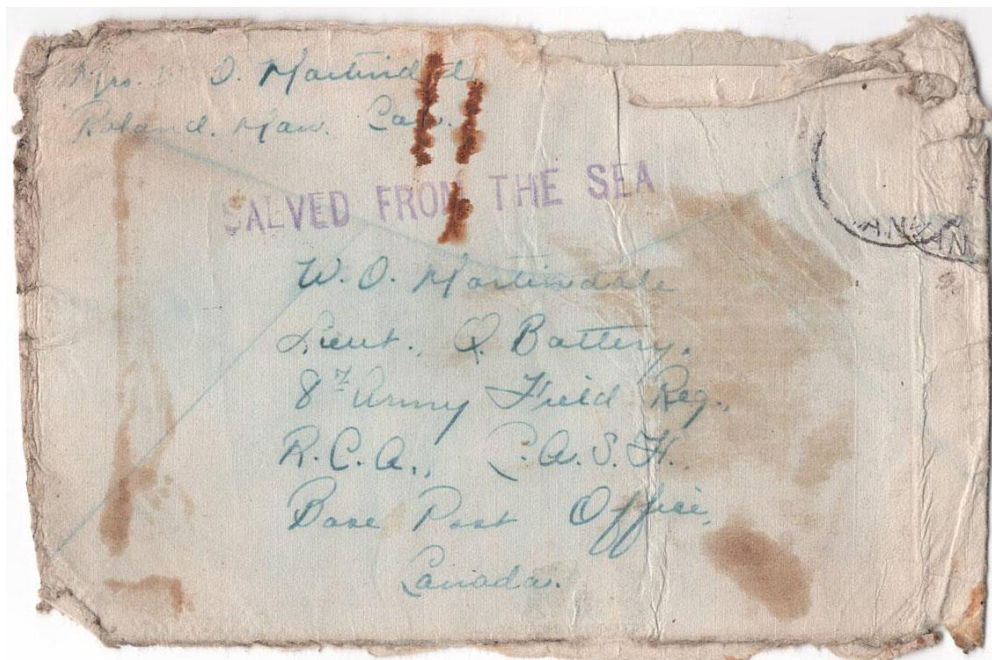 Mrs. W. O. Martindale
Roland. Man. Can.
SALVED FROM THE SEA
W. O. Martindale
Lieut., Q Battery,
8th Army Field Reg.,
R.C.A., C.A.S.F.
Base Post Office,
Canada.